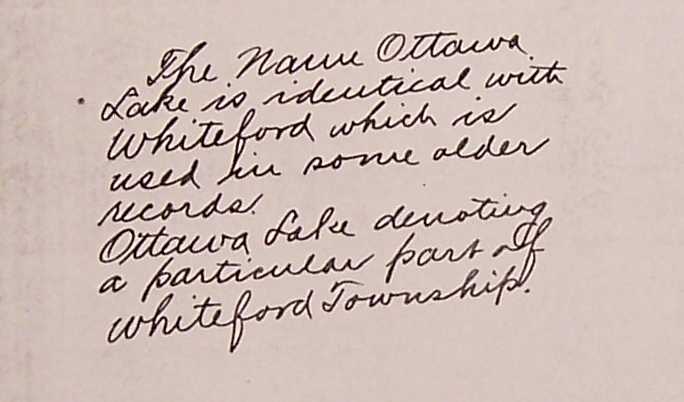 The Name Ottawa
Lake is identical with
Whiteford which is
used in some older
records.
Ottawa Lake denoting
a particular part of
Whiteford Township.